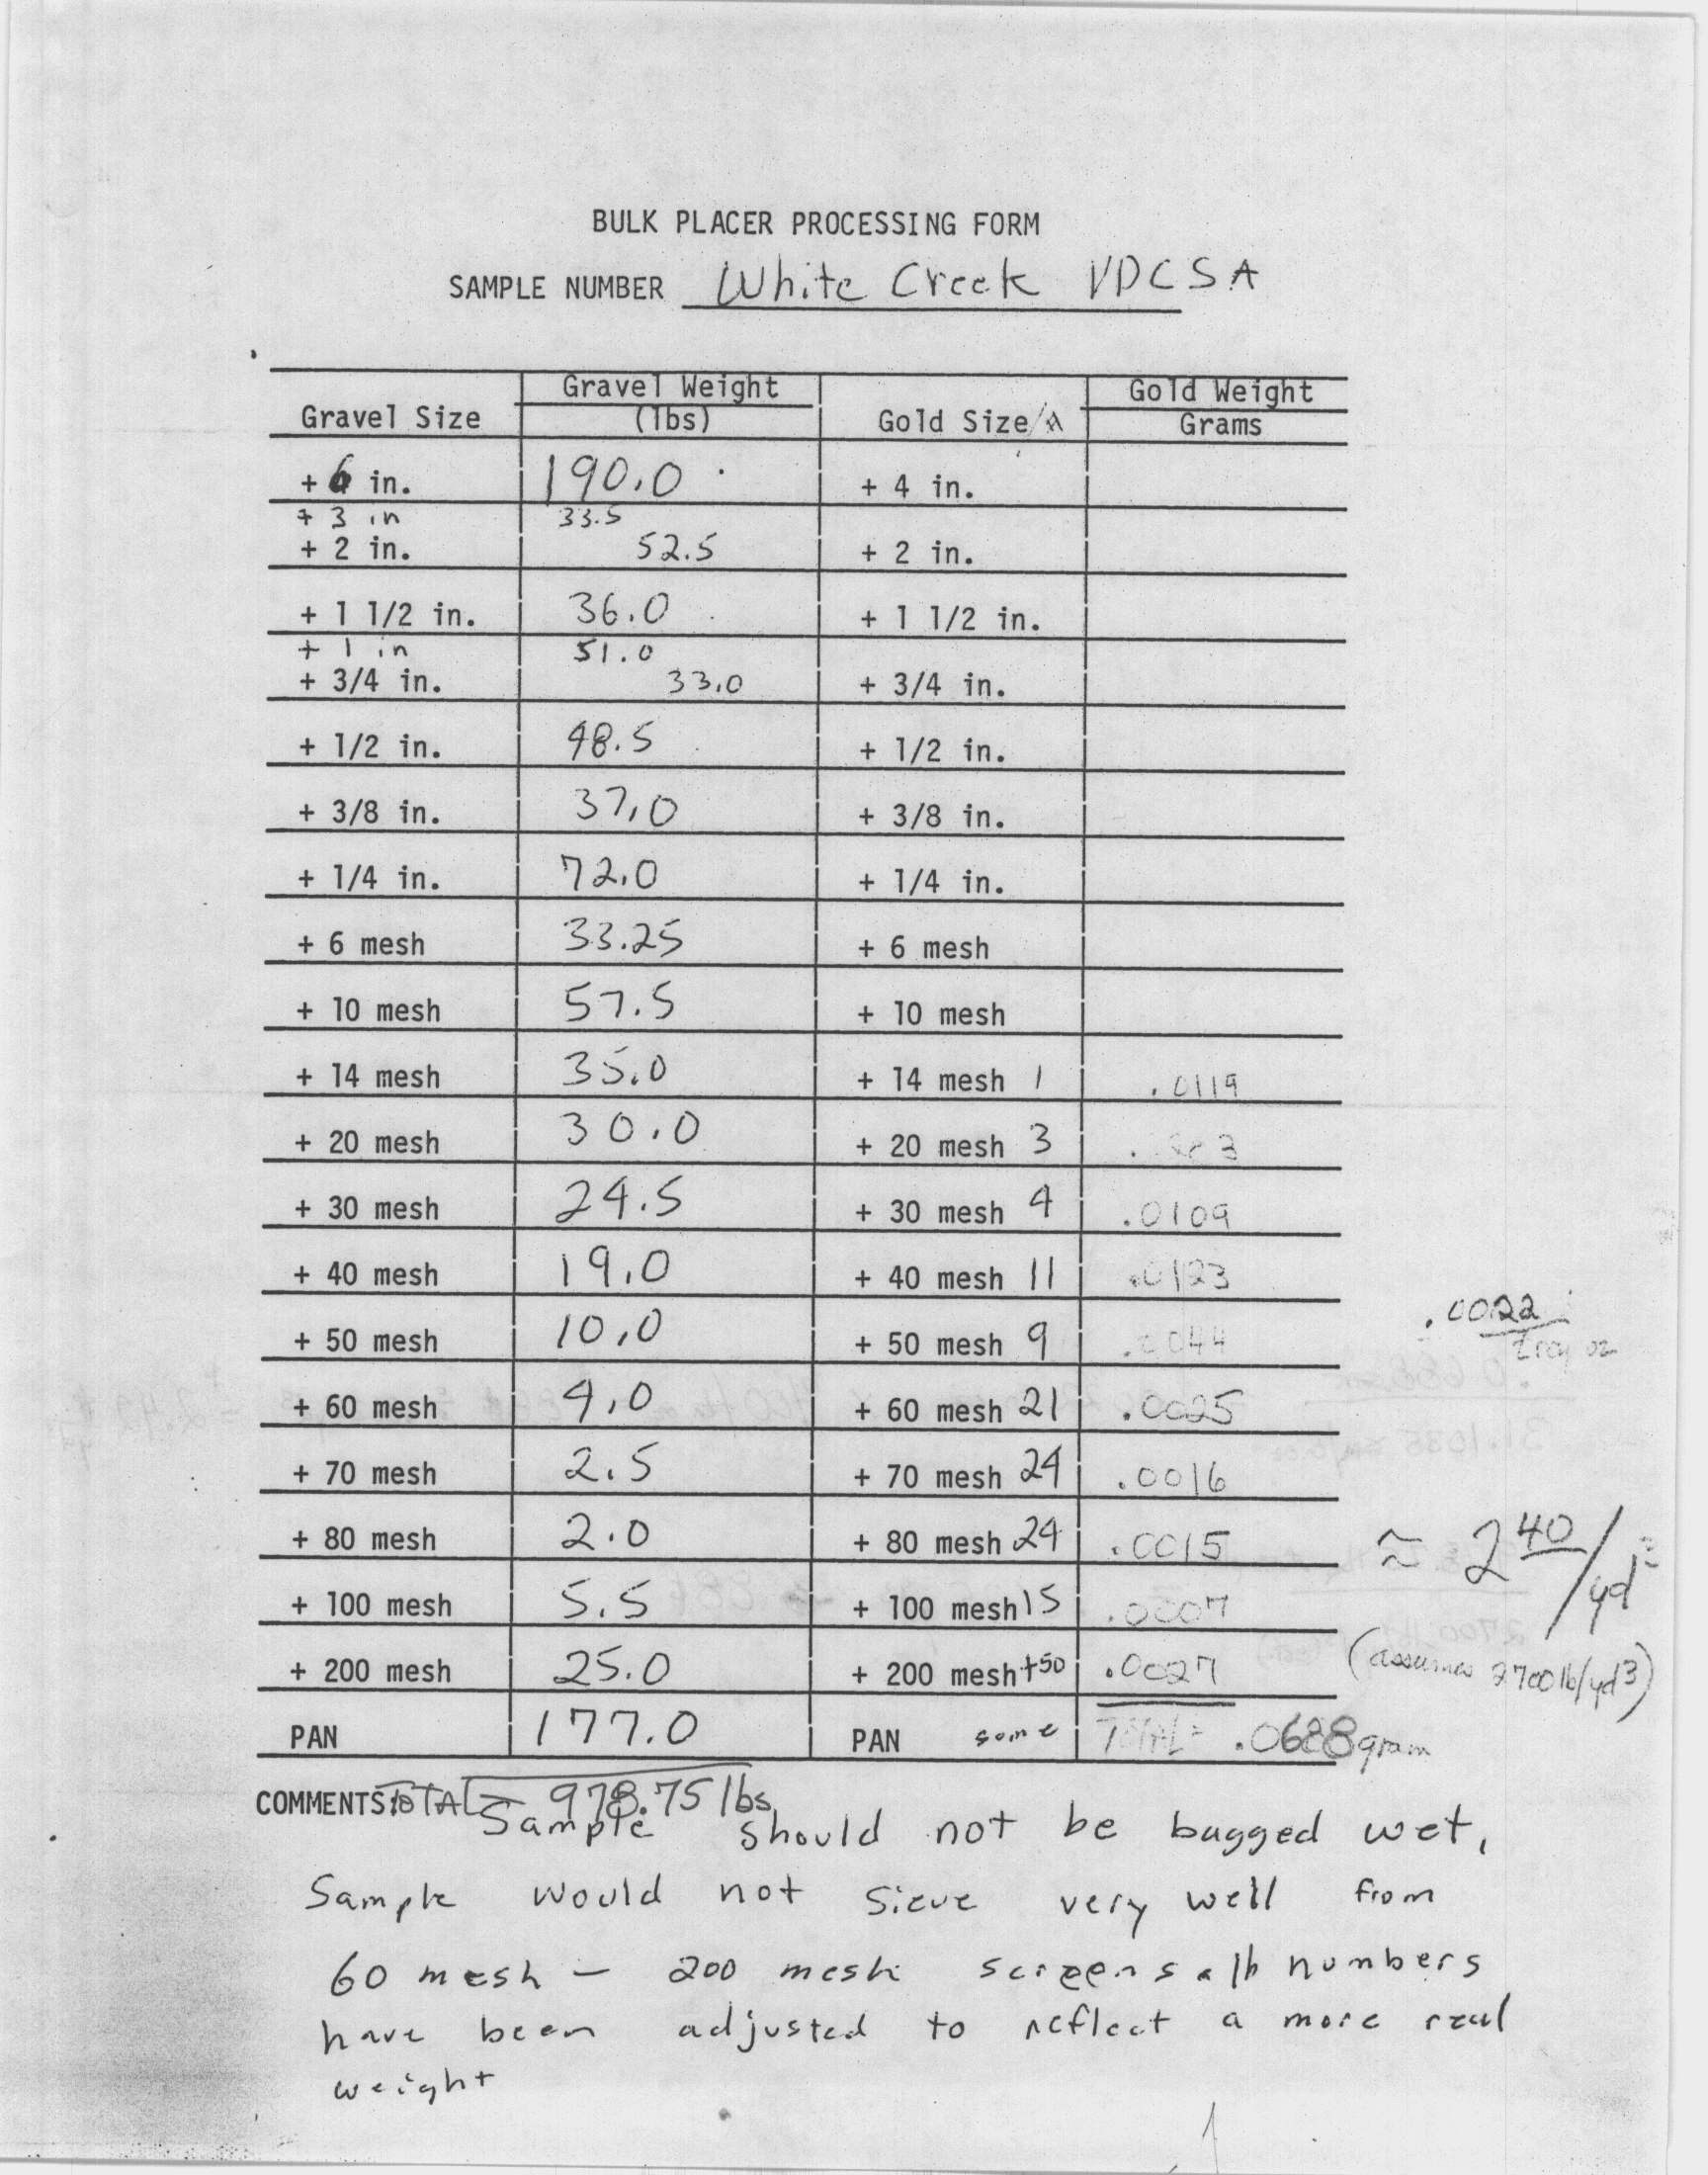 BULK PLACER PROCESSING FORM
SAMPLE NUMBER White Creek VDCSA
Gravel Size Gravel Weight (lbs) Gold Size/ Gold Weight Grams
+ 6 in. 190.0 + 4 in.
+ 3 in 33.5
+ 2 in. 52.5 + 2 in.
+ 1 1/2 in. 36.0 + 1 1/2 in.
+ 1 in 51.0
+ 3/4 in. 33.0 + 3/4 in.
+ 1/2 in. 48.5 + 1/2 in.
+ 3/8 in. 37.0 + 3/8 in.
+ 1/4 in. 72.0 + 1/4 in.
+ 6 mesh 33.25 + 6 mesh
+ 10 mesh 57.5 + 10 mesh
+ 14 mesh 35.0 + 14 mesh 1 .0119
+ 20 mesh 30.0 + 20 mesh 3
+ 30 mesh 24.5 + 30 mesh 4 .0109
+ 40 mesh 19.0 + 40 mesh 11 .0123
.0022 troy oz
+ 50 mesh 10.0 + 50 mesh 9 .0044
+ 60 mesh 4.0 + 60 mesh 21 .0025
+ 70 mesh 2.5 + 70 mesh 24 .0016
+ 80 mesh 2.0 + 80 mesh 24 .0015
≈ 2 40/yd³
+ 100 mesh 5.5 + 100 mesh 15 .0007
+ 200 mesh 25.0 + 200 mesh +50 .0027
(assumes 2700 lb/yd3)
PAN 177.0 PAN some TOTAL = .0688 gram
COMMENTS: TOTAL = 978.75 lbs
Sample should not be bagged wet,
Sample would not sieve very well from
60 mesh - 200 mesh screens. lb numbers
have been adjusted to reflect a more real
weight